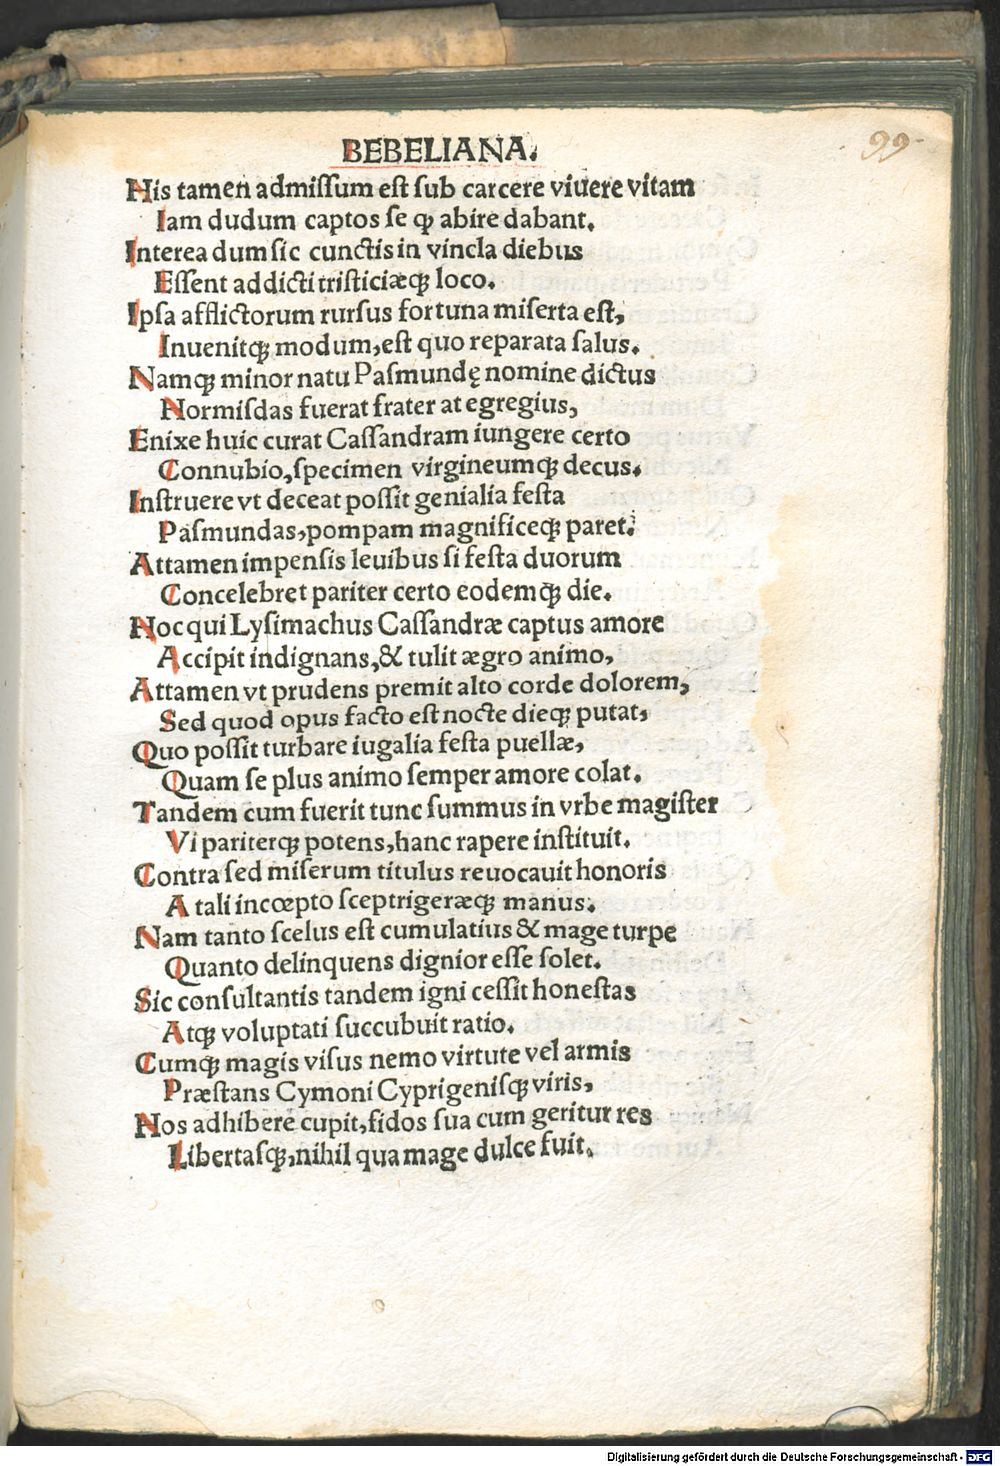 BEBELIANA.
99
His tamen admissum est sub carcere viuere vitam
Iam dudum captos se ꝙ abire dabant.
Interea dum sic cunctis in vincla diebus
Essent addicti tristiciæqꝫ loco.
Ipsa afflictorum rursus fortuna miserta est,
Inuenitqꝫ modum, est quo reparata salus.
Namqꝫ minor natu Pasmundę nomine dictus
Hormisdas fuerat frater at egregius,
Enixe huic curat Cassandram iungere certo
Connubio, specimen virgineumqꝫ decus.
Instruere vt deceat possit genialia festa
Pasmundas, pompam magnificeqꝫ paret.
Attamen impensis leuibus si festa duorum
Concelebret pariter certo eodemqꝫ die.
Hoc qui Lysimachus Cassandræ captus amore
Accipit indignans, & tulit ægro animo,
Attamen vt prudens premit alto corde dolorem,
Sed quod opus facto est nocte dieqꝫ putat,
Quo possit turbare iugalia festa puellæ,
Quam se plus animo semper amore colat.
Tandem cum fuerit tunc summus in vrbe magister
Vi pariterqꝫ potens, hanc rapere instituit.
Contra sed miserum titulus reuocauit honoris
A tali incœpto sceptrigeræqꝫ manus.
Nam tanto scelus est cumulatius & mage turpe
Quanto delinquens dignior esse solet.
Sic consultantis tandem igni cessit honestas
Atqꝫ voluptati succubuit ratio.
Cumqꝫ magis visus nemo virtute vel armis
Præstans Cymoni Cyprigenisqꝫ viris,
Hos adhibere cupit, fidos sua cum geritur res
Libertasqꝫ, nihil qua mage dulce fuit.
Digitalisierung gefördert durch die Deutsche Forschungsgemeinschaft - DFG